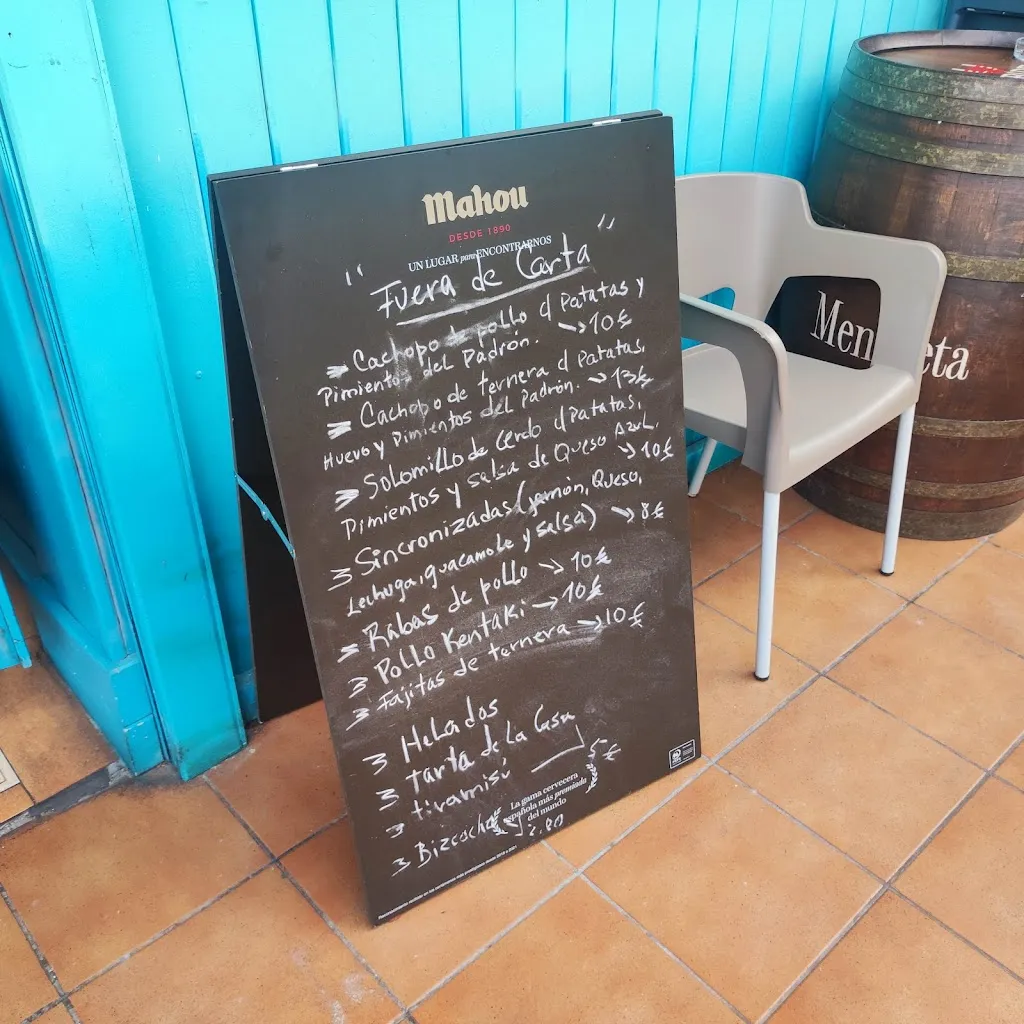 Mahou
DESDE 1890
UN LUGAR para ENCONTRARNOS
"Fuera de Carta"
Cachopo de pollo c/ Patatas y
Pimientos del Padrón. → 10 €
Cachopo de ternera c/ Patatas,
Huevo y Pimientos del Padrón. → 13€
Solomillo de Cerdo c/ Patatas,
Pimientos y salsa de Queso Azul. → 10€
Sincronizadas (jamón, Queso,
Lechuga, guacamole y salsa) → 8€
Rabas de pollo → 10 €
Pollo Kentaki → 10€
Fajitas de ternera → 10 €
Helados
tarta de la Casa
tiramisú 5 €
La gama cervecera
española más premiada
del mundo
Bizcocho 2,80
Men eta